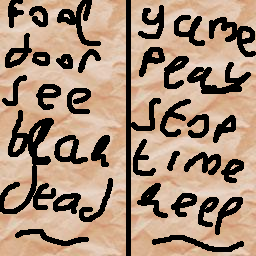 fool
door
see
blah
dead
game
play
stop
time
help